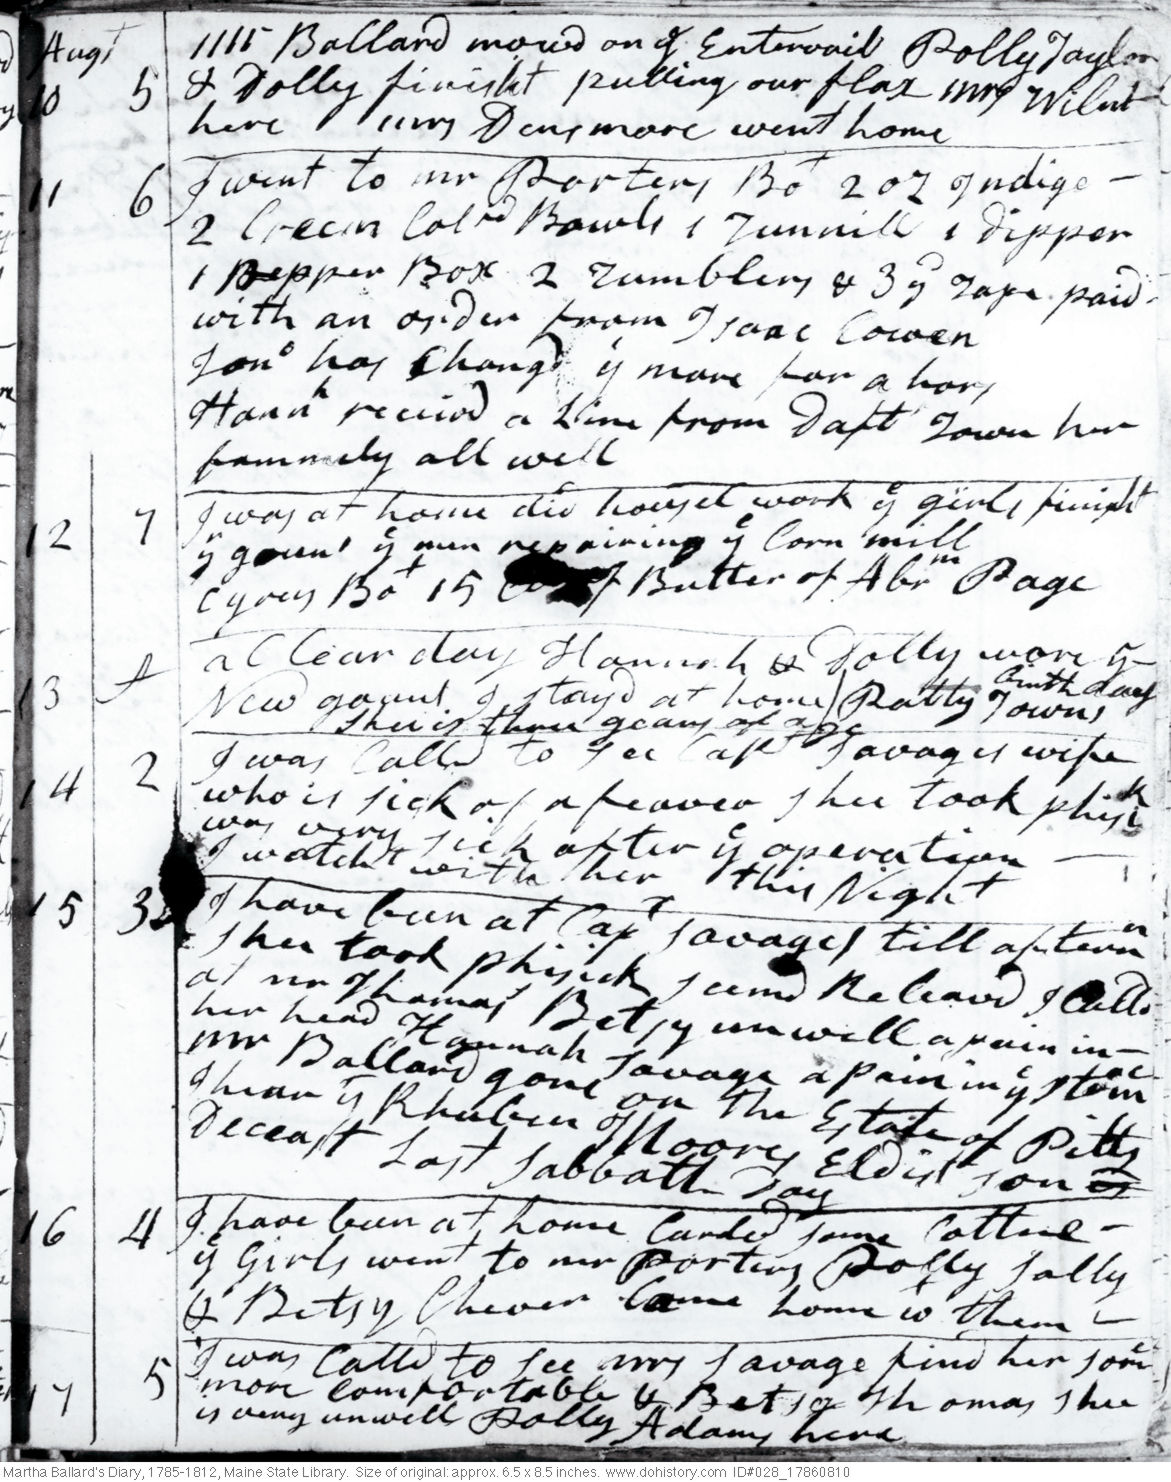 Augt
10 5 mr Ballard mowd on ye Entervail Polly Taylor
& Dolly finisht pulling our flax mrs Wilut
here mrs Densmore went home
11 6 I went to mr Porters Bot 2 oz Indige —
2 Cream Colrd Bowls 1 Tunnill 1 dipper
1 Pepper Box 2 Tumblers & 3 yd Tape paid
with an order from Isaac Cowen
Jono has Changd ye mare for a hors
Hannh receivd a Line from Daft Town her
fammely all well
12 7 I was at home did housel work ye girls finisht
yr gouns ye men repairing ye Corn mill
Cyrus Bot 15 of Butter of Abrm Page
13 A a Clear day Hannah & Dolly wore yr
New gouns I stayd at home Patty Towns Birth day
shee is three years of age
14 2 I was Calld to see Capt Savages wife
who is sick of a feaver shee took phisik
was very sick after ye operation —
I watcht with her this Night
15 3 I have been at Capt Savages till aftern
shee took phisick seemd Releavd I Calld
at mr Thomas' Betsy unwell a pain in
her head Hannah Savage a pain in ye stomac
mr Ballard gone on the Estate of Pitts
I hear yt Rhuben Moores Eldist son
Deceast Last Sabbath Day
16 4 I have been at home Carded some Cotten —
ye Girls went to mr Porters Polly Sally
& Betsy Chever Came home wt them —
17 5 I was Calld to see mrs Savage find her some
more Comfortable & Betsy Thomas shee
is very unwell Polly Adams here
Martha Ballard's Diary, 1785-1812, Maine State Library. Size of original: approx. 6.5 x 8.5 inches. www.dohistory.com ID#028_17860810